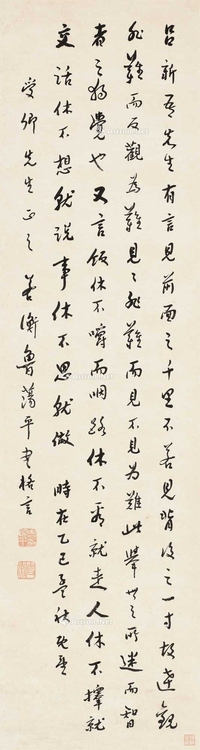 呂新吾先生有言見前面之千里不若見背後之一寸故達觀
非難而反觀為難見々非難而見不見為難此舉世之所迷而智
者之獨覺也又言飯休不嚼而咽路休不看就走人休不擇就
交話休不想就說事休不思就做 時在乙巳孟秋既望
受卿先生正之 若衡魯蕩平書格言